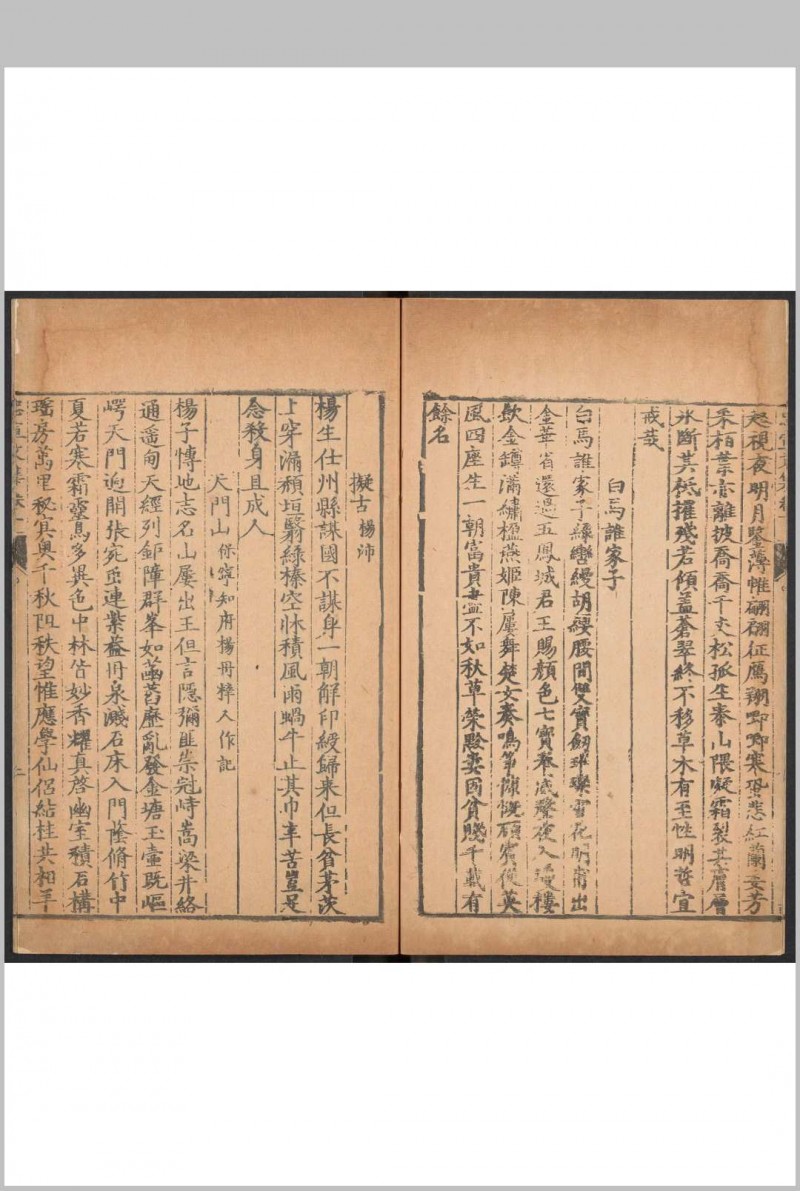 起視夜明月鑒薄帷翩翩征鴈翔唧唧寒螀悲紅蘭委芳
采柏葉亦離披喬喬千丈松孤生泰山隈凝霜裂其膚層
氷斷其柢摧殘若傾盖蒼翠終不移草木有至性明哲宜
戒哉
白馬誰家子
白馬誰家子緑轡縵胡纓腰間雙寶劒璀璨雪花明甫出
金華省還過五鳳城君王賜顔色七寶 夜入 樓
飲金罇滿繡楹燕姬陳屢舞楚女奏鳴筝慷慨碩賓從英
風四座生一朝富貴盡不如秋草榮 妻因貧賤千載有
餘名
擬古楊沛
楊生仕州縣謀國不謀身一朝解印綬歸来但長貧茅茨
上穿漏頹垣翳緑榛空牀積風雨蝸牛止其巾辛苦豈足
念殺身且成人
天門山保寧知府楊冊梓人作記
楊子慱地志名山屢出王但言隱彌匪崇冠峙嵩梁井絡
通遥甸天經列鉅障群峯如菡萏靡亂發金塘玉壷既嶇
崿天門迥開張宛虿連紫葢冉泉濺石床入門蔭脩竹中
夏若寒霜靈鳥多異色中林皆妙香耀真啓幽室積石構
瑶房萬里秘寘奥千秋阻秩望惟應學仙侣結桂共相羊